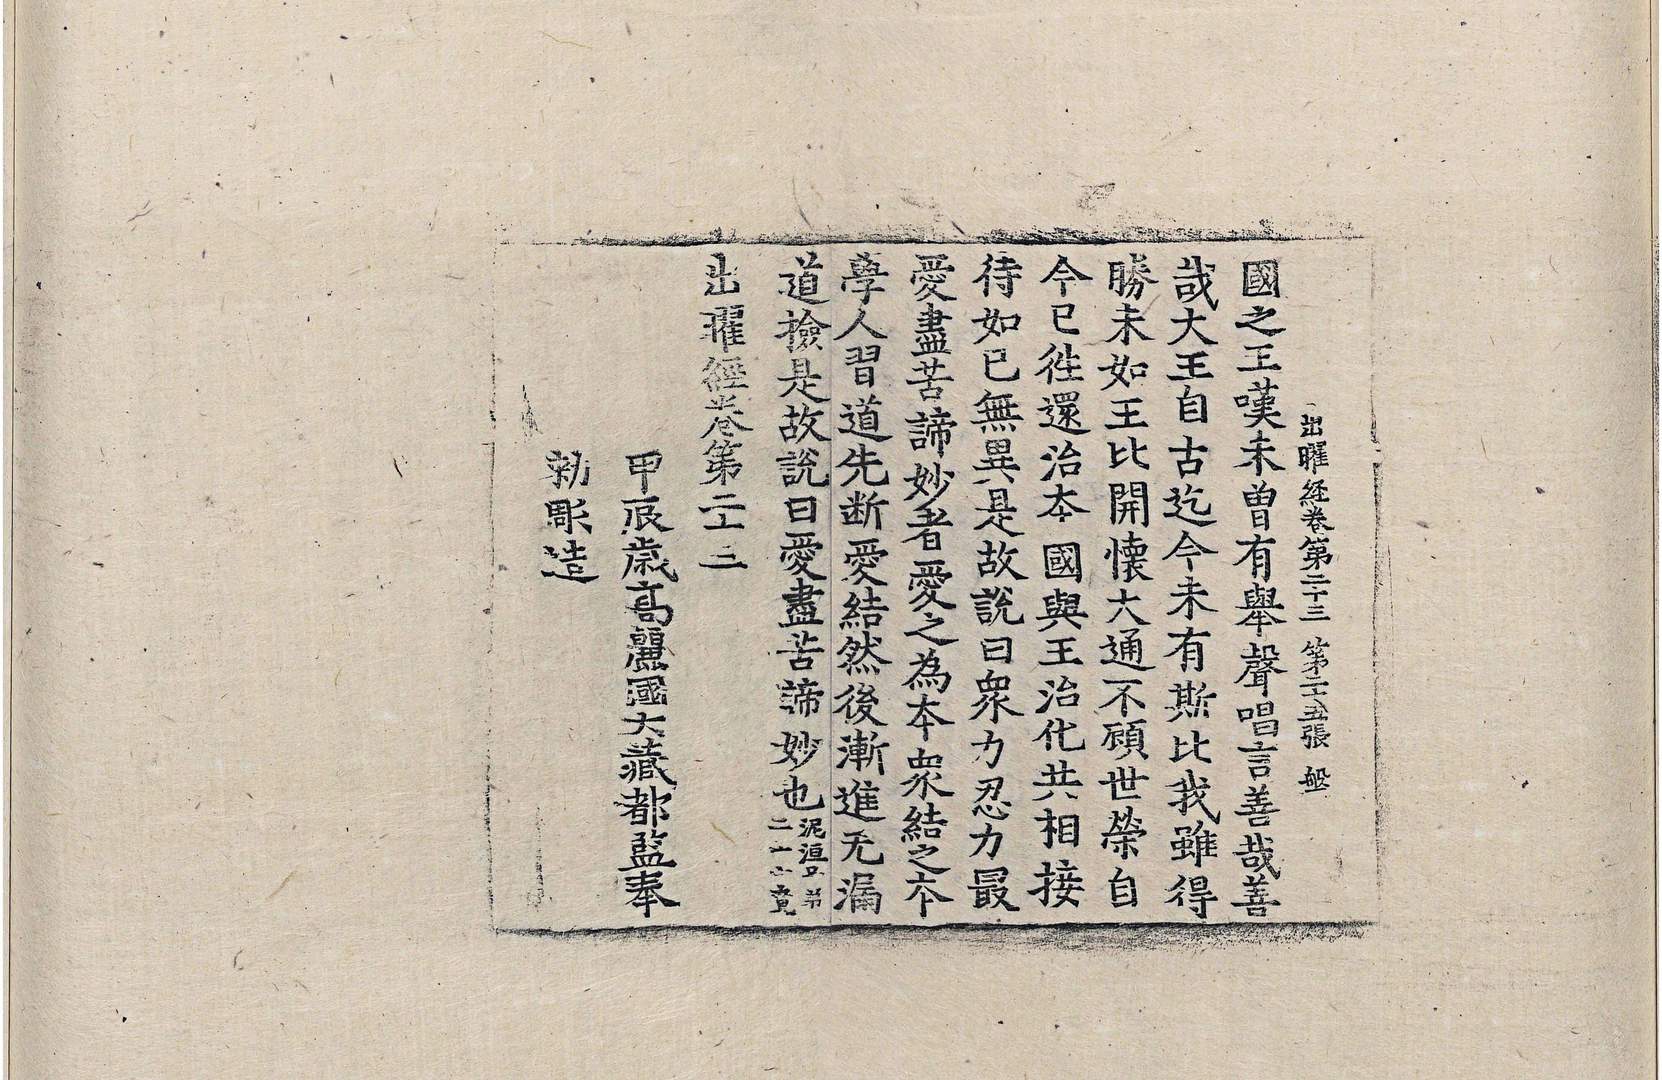 出曜經卷第二十三 第二十五張 盤
國之王嘆未曾有舉聲唱言善哉善
哉大王自古迄今未有斯比我雖得
勝未如王比開懷大通不顧世榮自
今已往還治本國與王治化共相接
待如已無異是故說曰衆力忍力最
愛盡苦諦妙者愛之為本衆結之本
學人習道先斷愛結然後漸進无漏
道撿是故說曰愛盡苦諦妙也泥洹品第
二十七竟
出曜經卷第二十三
甲辰歲高麗國大藏都監奉
勅彫造